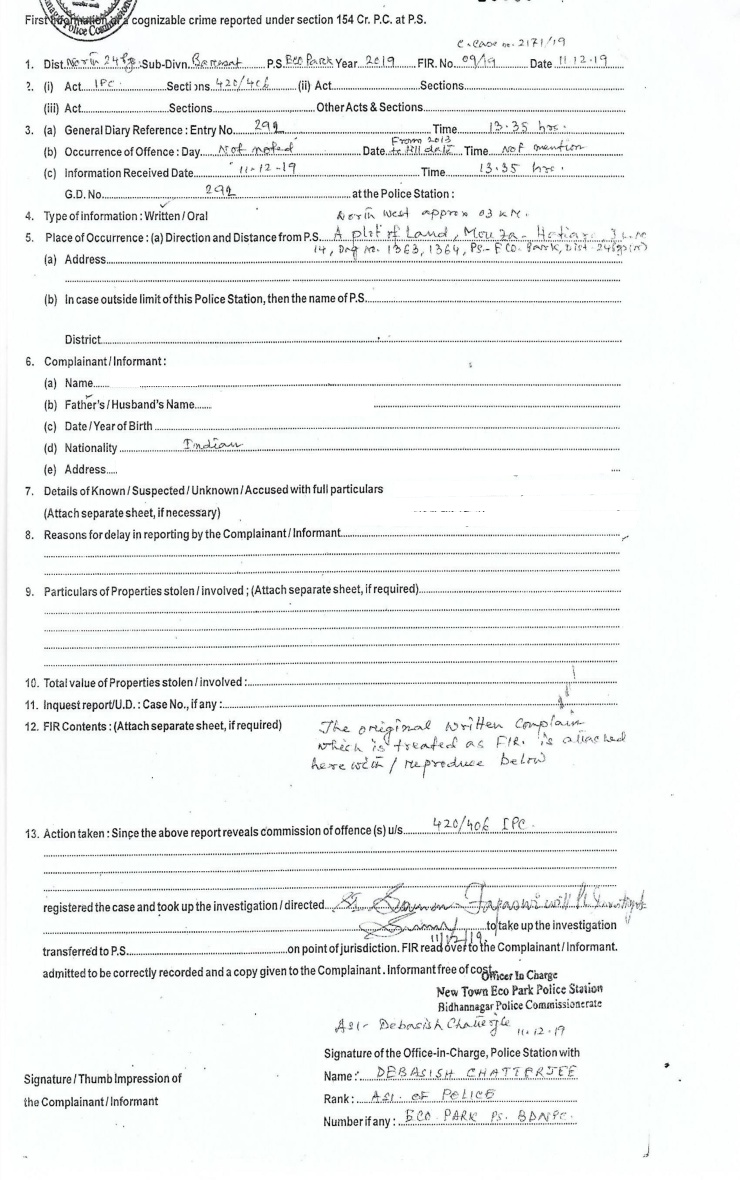 Police Commiss
First Information of a cognizable crime reported under section 154 Cr. P.C. at P.S.
C. Case no. 2171/19
1. Dist. North 24 Pgs Sub-Divn. Barasat P.S. Eco Park Year 2019 FIR. No 09/19 Date 11.12.19
2. (i) Act IPC Sections 420/406 (ii) Act Sections
(iii) Act Sections Other Acts & Sections
3. (a) General Diary Reference : Entry No. 292 Time 13.35 hrs.
(b) Occurrence of Offence : Day Not noted Date From 2013 to till date Time Not mention
(c) Information Received Date 11-12-19 Time 13.35 hrs.
G.D. No 292 at the Police Station :
4. Type of information : Written / Oral North West approx 03 K.M.
5. Place of Occurrence : (a) Direction and Distance from P.S. A plot of Land, Mouza- Hatiara
14, Dag no. 1363, 1364, Ps- ECO Park, Dist- 24 Pgs (N)
(a) Address
(b) In case outside limit of this Police Station, then the name of P.S.
District
6. Complainant / Informant :
(a) Name
(b) Father's / Husband's Name
(c) Date / Year of Birth
(d) Nationality Indian
(e) Address
7. Details of Known / Suspected / Unknown / Accused with full particulars
(Attach separate sheet, if necessary)
8. Reasons for delay in reporting by the Complainant / Informant
9. Particulars of Properties stolen / involved ; (Attach separate sheet, if required)
10. Total value of Properties stolen / involved :
11. Inquest report/U.D. : Case No., if any :
12. FIR Contents : (Attach separate sheet, if required) The original written complain
which is treated as FIR. is attached
here with / reproduce below
13. Action taken : Since the above report reveals commission of offence (s) u/s 420/406 IPC.
registered the case and took up the investigation / directed
to take up the investigation
transferred to P.S. on point of jurisdiction. FIR read over to the Complainant / Informant.
11/12/19
admitted to be correctly recorded and a copy given to the Complainant. Informant free of cost.
Officer In Charge
New Town Eco Park Police Station
Bidhannagar Police Commissionerate
ASI- Debasish Chatterjee 11.12.19
Signature of the Office-in-Charge, Police Station with
Signature / Thumb Impression of
the Complainant / Informant
Name : DEBASISH CHATTERJEE
Rank : ASI. OF POLICE
Number if any : ECO PARK PS. BDNPC.